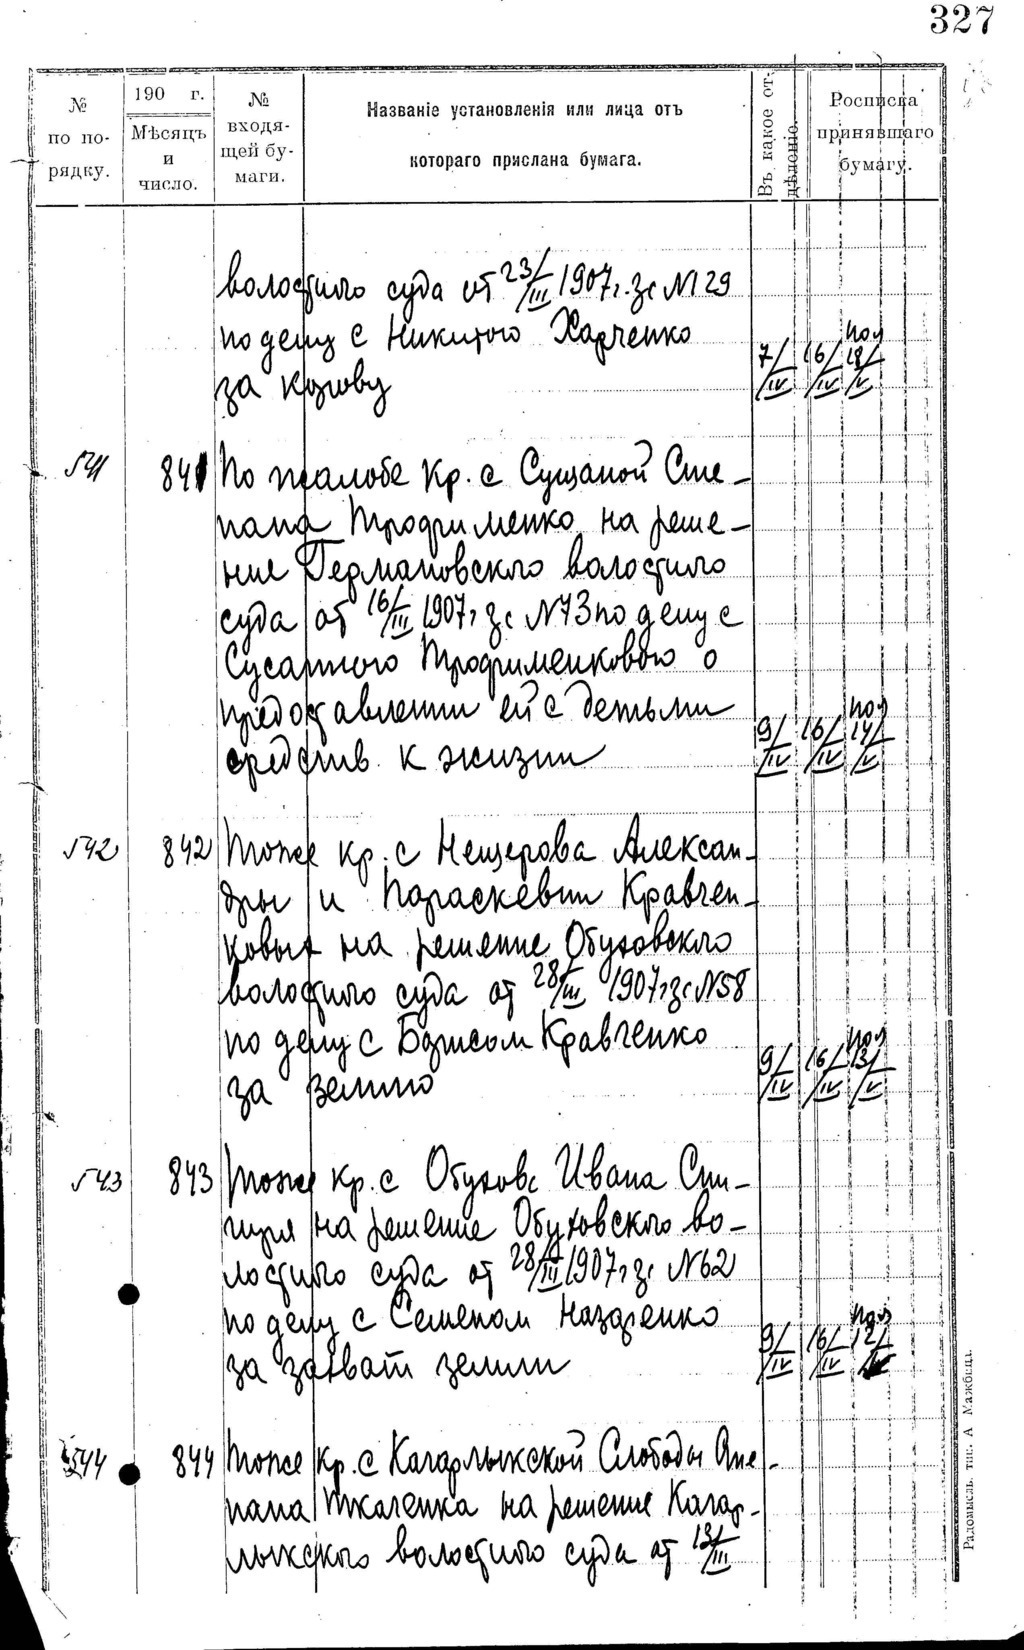 327
№ по по-рядку.
190 г. Мѣсяцъ и число.
№ входя-щей бу-маги.
Названіе установленія или лица отъ
котораго прислана бумага.
Въ какое от-дѣленіе.
Росписка принявшаго бумагу.
волостного суда от 23/III 1907 г. за №129
по делу с Никитою Харченко
за корову
7/IV 16/IV 18/V
541 841 По жалобе кр. с Сущаной Сте-
пана Трофименко на реше-
ние Германовского волостного
суда от 16/III 1907 г за №73 по делу с
Сусанною Трофименковою о
предоставлении ей с детьми
средств к жизни
9/IV 16/IV 14/V
542 842 Тоже кр. с Нещерова Алексан-
дры и Параскевии Кравчен-
ковых на решение Обуховского
волостного суда от 28/III 1907 г за №58
по делу с Борисом Кравченко
за землю
9/IV 16/IV 13/V
543 843 Тоже кр. с Обухова Ивана Сни-
гиря на решение Обуховского во-
лостного суда от 28/III 1907 г за №62
по делу с Семеном Назаренко
за захват земли
9/IV 16/IV 12/
544 844 Тоже кр. с Кагарлыкской Слободы Сте-
пана Ткаченка на решение Кагар-
лыкского волостного суда от 13/III
Радомысль, тип. А Мажбица.